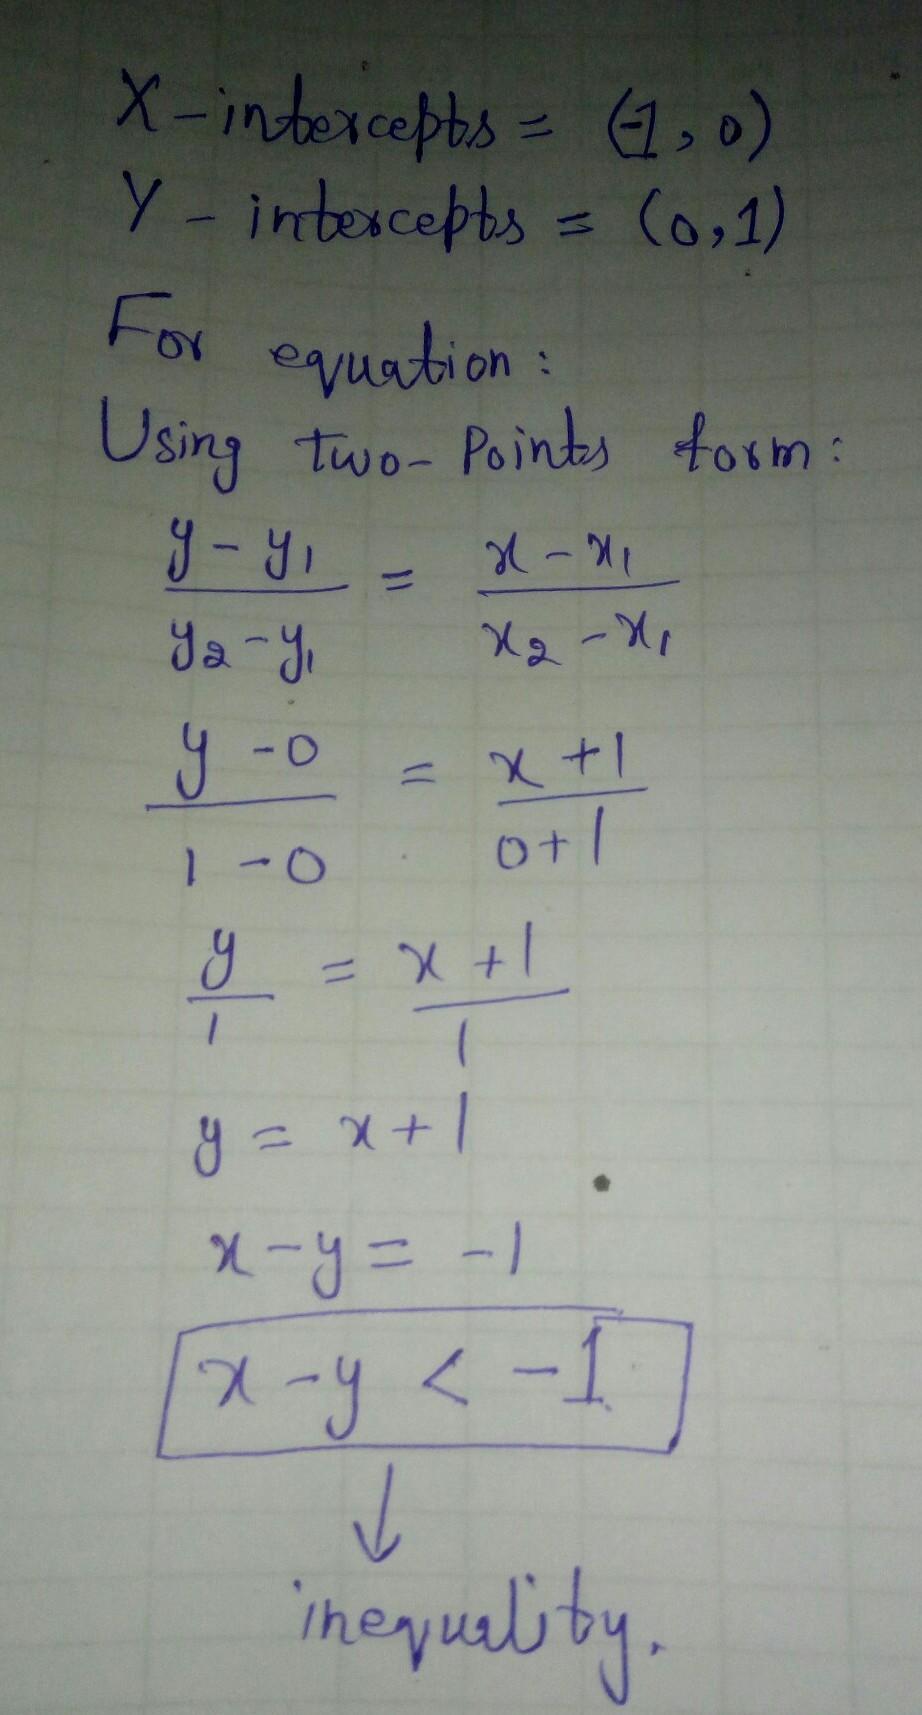 X-intercepts = (-1, 0)
Y - intercepts = (0,1)
For equation:
Using two-Points form:
y - y₁ / y₂ - y₁ = x - x₁ / x₂ - x₁
y - 0 / 1 - 0 = x + 1 / 0 + 1
y / 1 = x + 1 / 1
y = x + 1
x - y = -1
x - y < -1
↓
inequality.